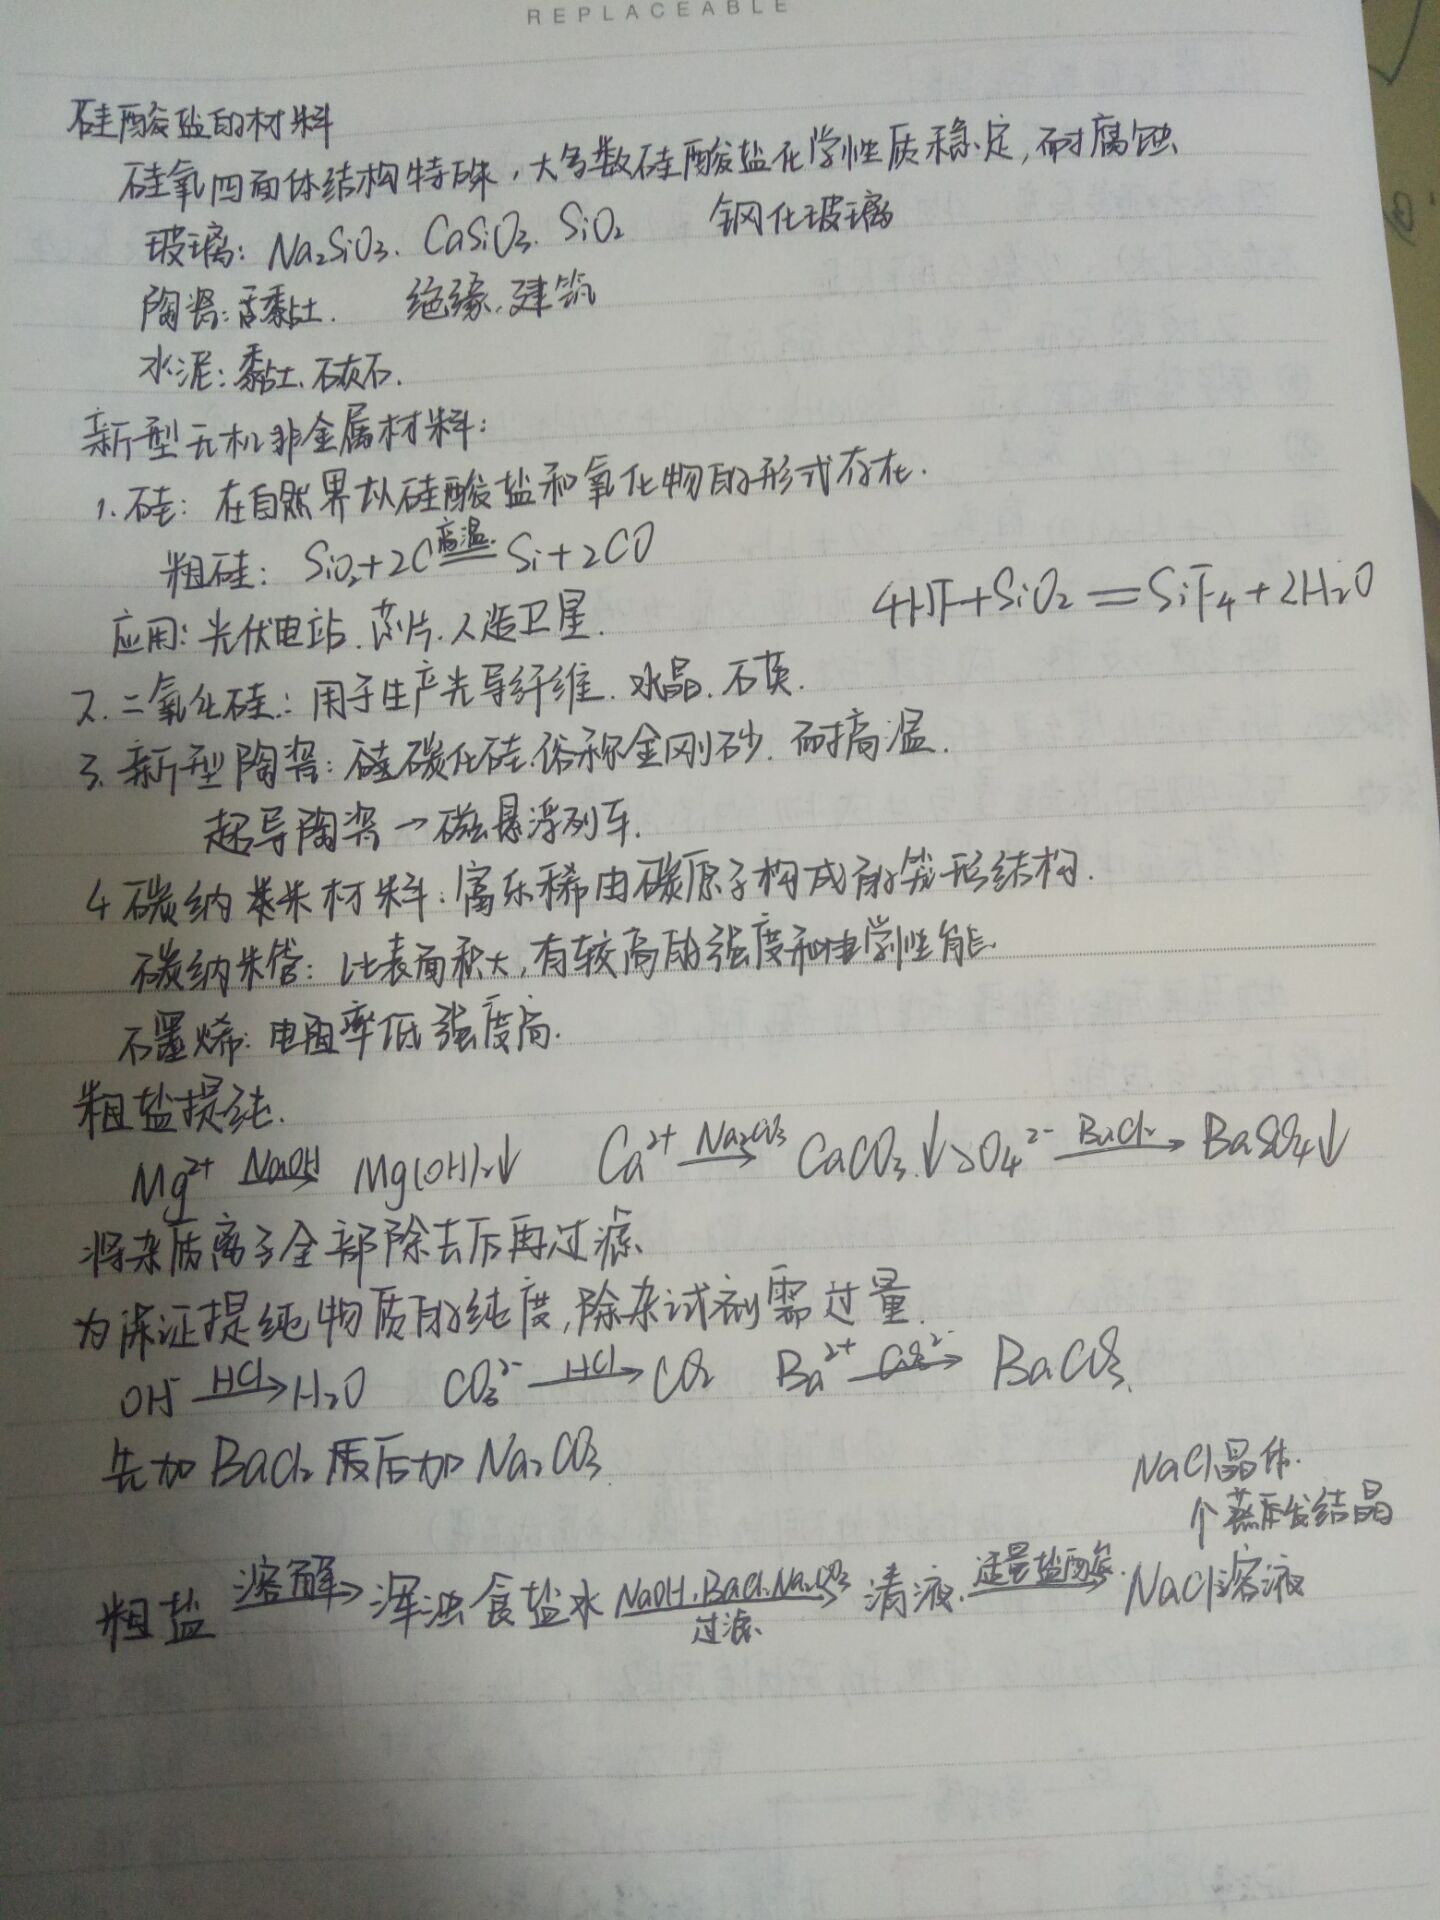 REPLACEABLE
硅酸盐的材料
硅氧四面体结构特殊，大多数硅酸盐化学性质稳定，耐腐蚀
玻璃：Na₂SiO₃. CaSiO₃. SiO₂ 钢化玻璃
陶瓷：黏土. 绝缘.建筑
水泥：黏土.石灰石.
新型无机非金属材料：
1.硅：在自然界以硅酸盐和氧化物的形式存在.
粗硅：SiO₂+2C =高温= Si+2CO
4HF+SiO₂=SiF₄+2H₂O
应用：光伏电站.芯片.人造卫星.
2.二氧化硅：用于生产光导纤维.水晶.石英.
3.新型陶瓷：硅碳化硅.俗称金刚砂.耐高温.
超导陶瓷→磁悬浮列车.
4碳纳米材料：富乐稀由碳原子构成的笼形结构.
碳纳米管：比表面积大，有较高的强度和电学性能
石墨烯：电阻率低 强度高.
粗盐提纯.
Mg²⁺ —NaOH→ Mg(OH)₂↓ Ca²⁺ —Na₂CO₃→ CaCO₃↓ SO₄²⁻ —BaCl₂→ BaSO₄↓
将杂质离子全部除去后再过滤.
为保证提纯物质的纯度，除杂试剂需过量.
OH⁻ —HCl→ H₂O CO₃²⁻ —HCl→ CO₂ Ba²⁺ —CO₃²⁻→ BaCO₃.
先加BaCl₂ 后加Na₂CO₃
NaCl晶体.
↑蒸发结晶
粗盐 —溶解→ 浑浊食盐水 —NaOH.BaCl₂.Na₂CO₃ 过滤→ 清液. —适量盐酸→ NaCl溶液